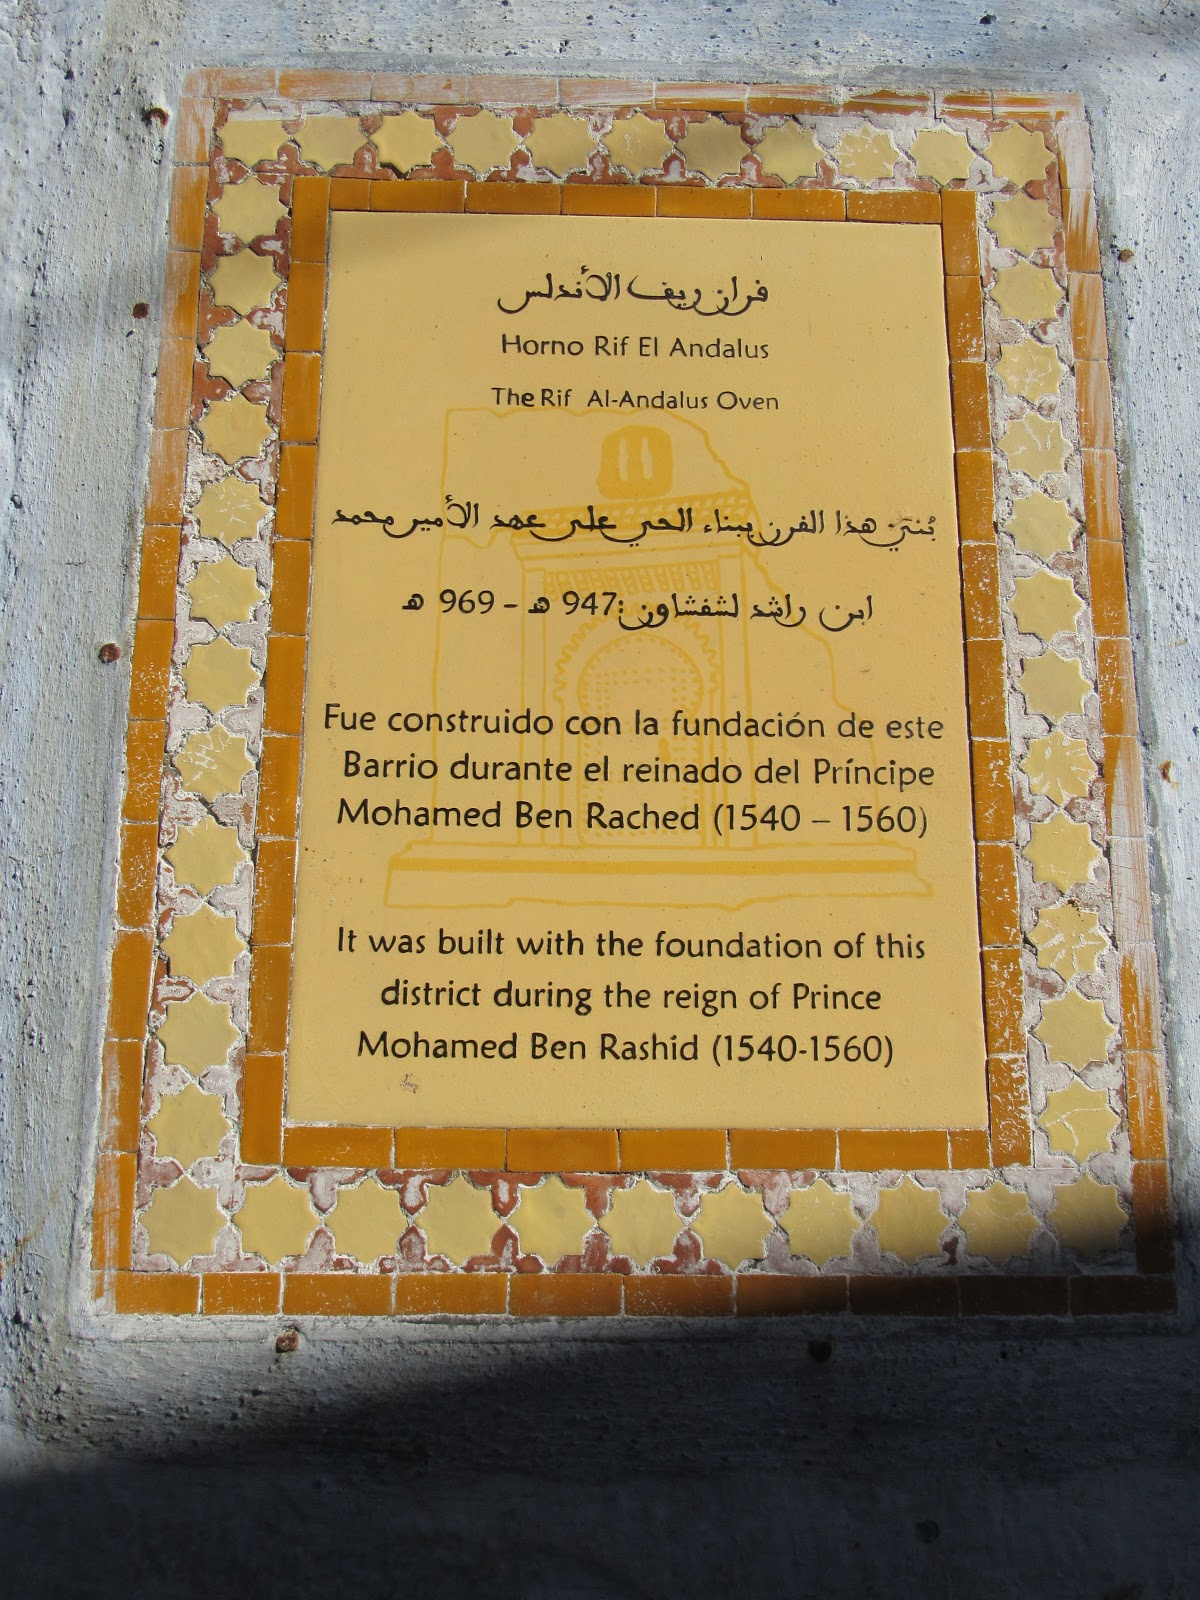 فران ريف الأندلس
Horno Rif El Andalus
The Rif Al-Andalus Oven
بُني هذا الفرن ببناء الحي على عهد الأمير محمد
ابن راشد لشفشاون: 947 ھ - 969 ھ
Fue construido con la fundación de este
Barrio durante el reinado del Príncipe
Mohamed Ben Rached (1540 – 1560)
It was built with the foundation of this
district during the reign of Prince
Mohamed Ben Rashid (1540-1560)